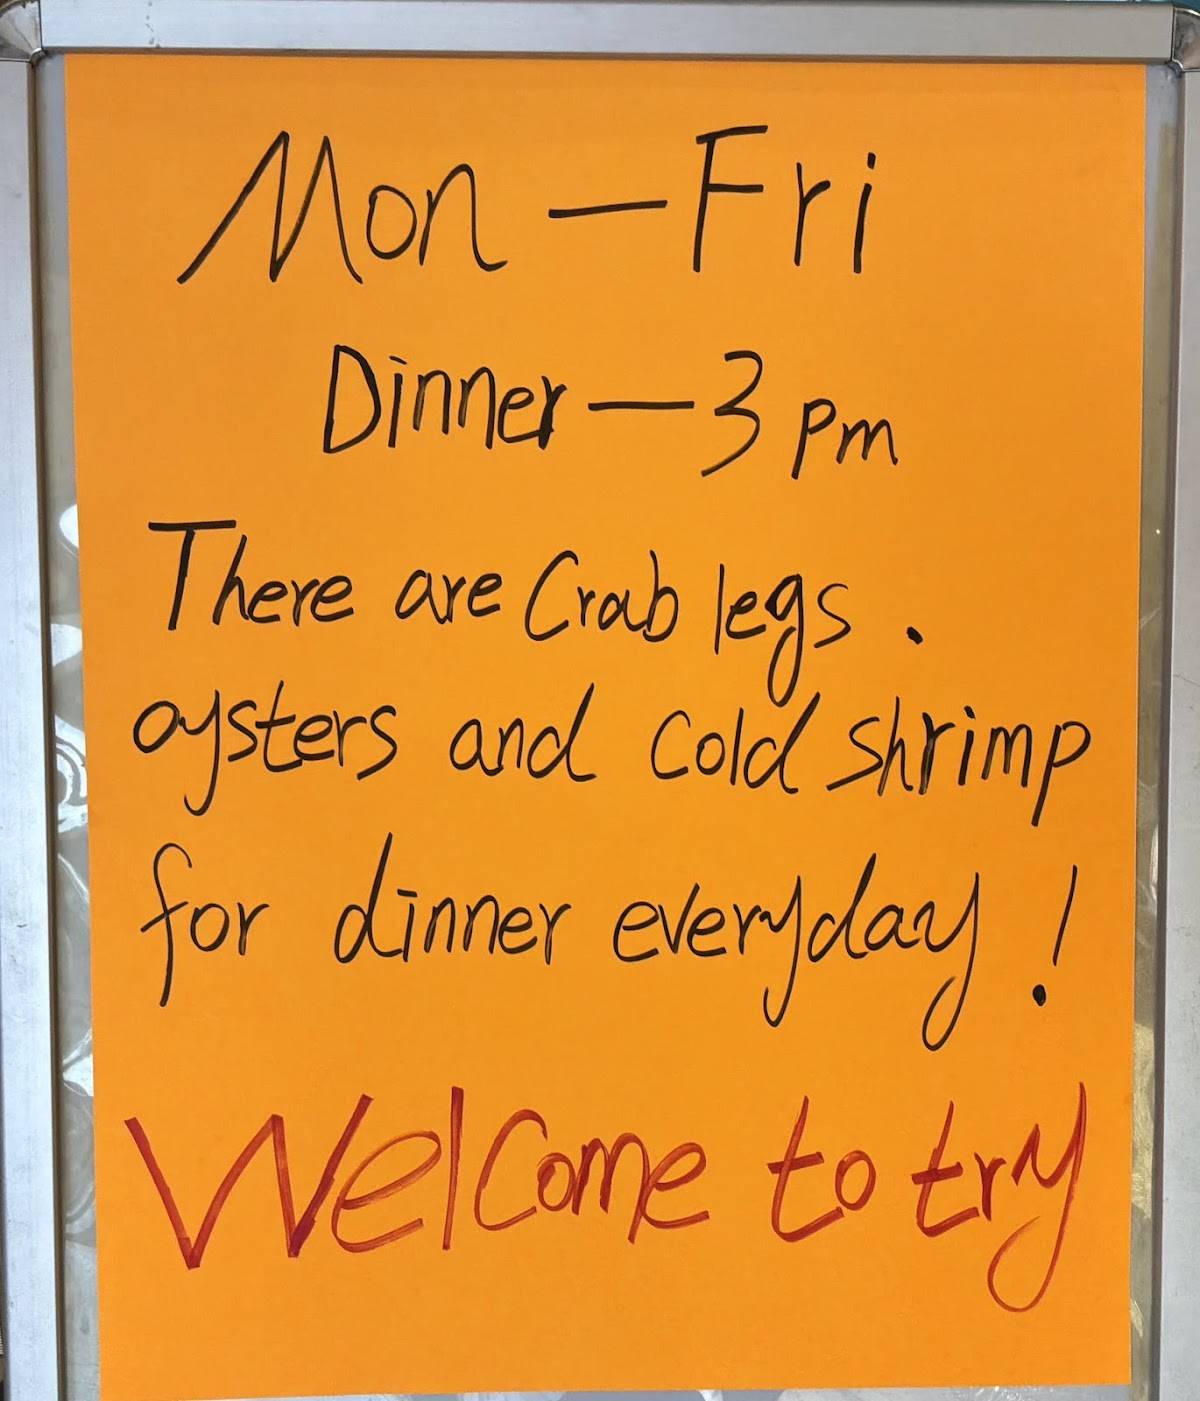 Mon - Fri
Dinner - 3 pm
There are Crab legs .
oysters and cold shrimp
for dinner everyday !
Welcome to try